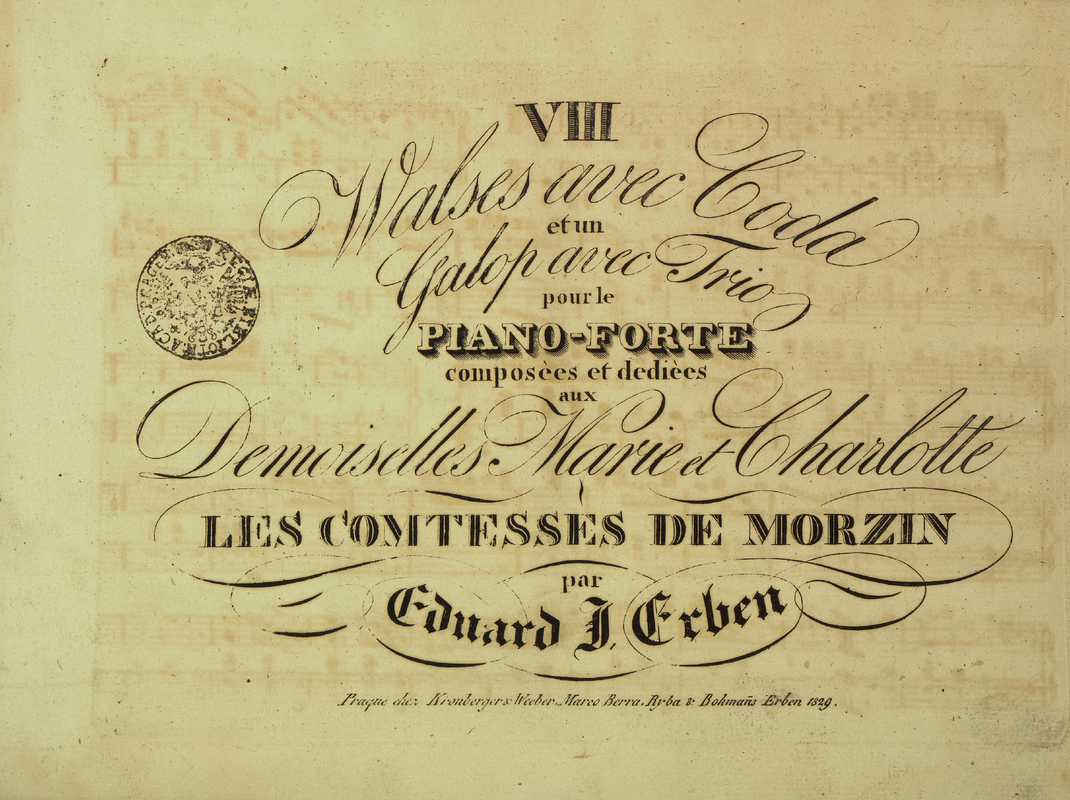 VIII
Walses avec Coda
et un
Galop avec Trio
pour le
PIANO-FORTE
composèes et dedièes
aux
Demoiselles Marie et Charlotte
LES COMTESSES DE MORZIN
par
Eduard J. Erben
Prague chez Kronberger & Weeber. Marco Berra. Ryba & Bohman̄s Erben 1829.